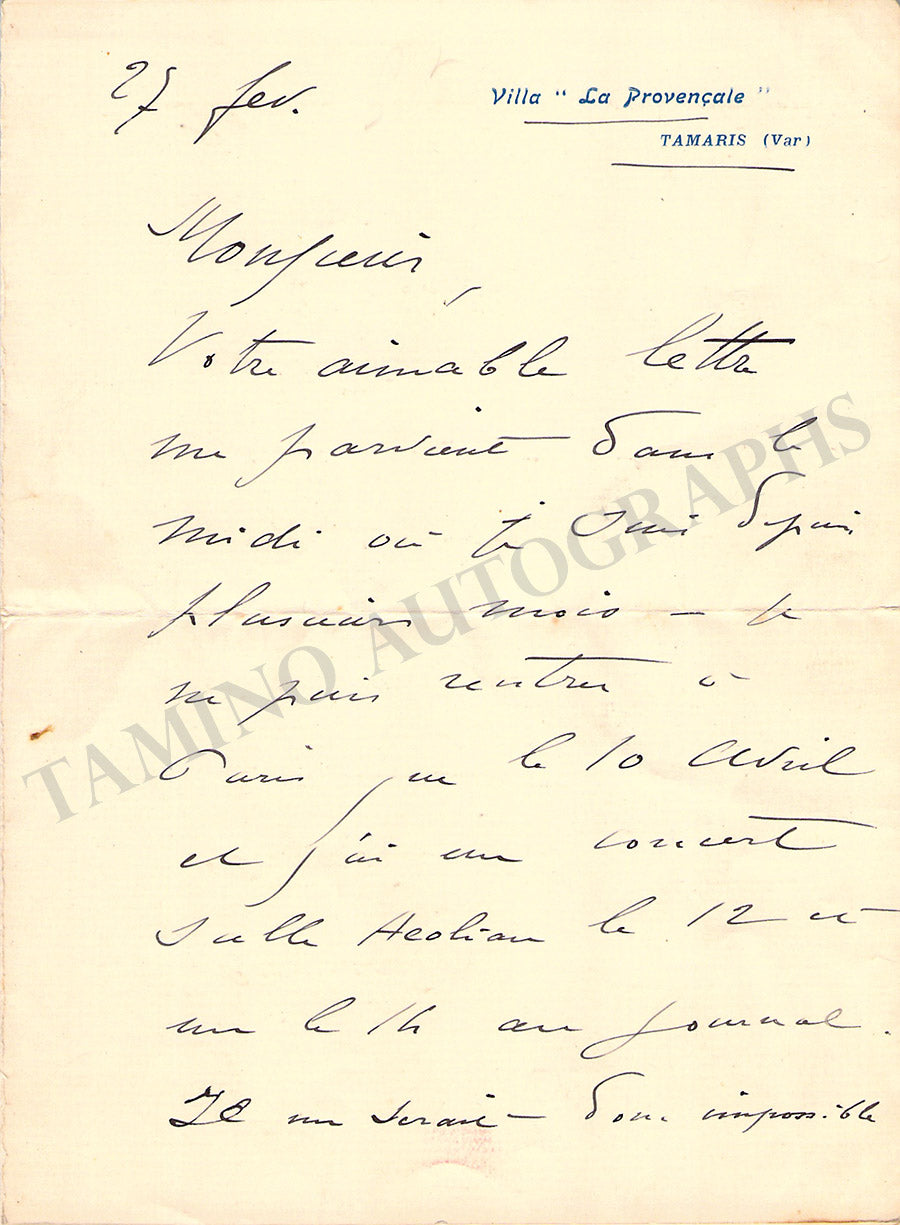 27 fev.
Villa " La Provençale "
TAMARIS (Var)
Monsieur,
Votre aimable lettre
me parvient dans le
midi où je suis depuis
plusieurs mois — je
ne puis rentrer à
Paris que le 10 Avril
et j'ai un concert
salle Aeolian le 12 et
un le 14 au journal.
Il me serait donc impossible
TAMINO AUTOGRAPHS